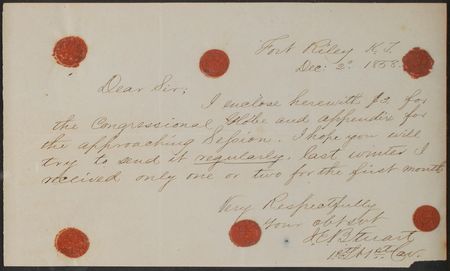 Fort Riley K.T.
Dec: 2ⁿ 1858.
Dear Sir;
I enclose herewith $2 for
the Congressional Globe and appendix for
the approaching Session. I hope you will
try to send it regularly, last winter I
received only one or two for the first month
Very Respectfully
Your obt svt
JEB Stuart
1st Cav.